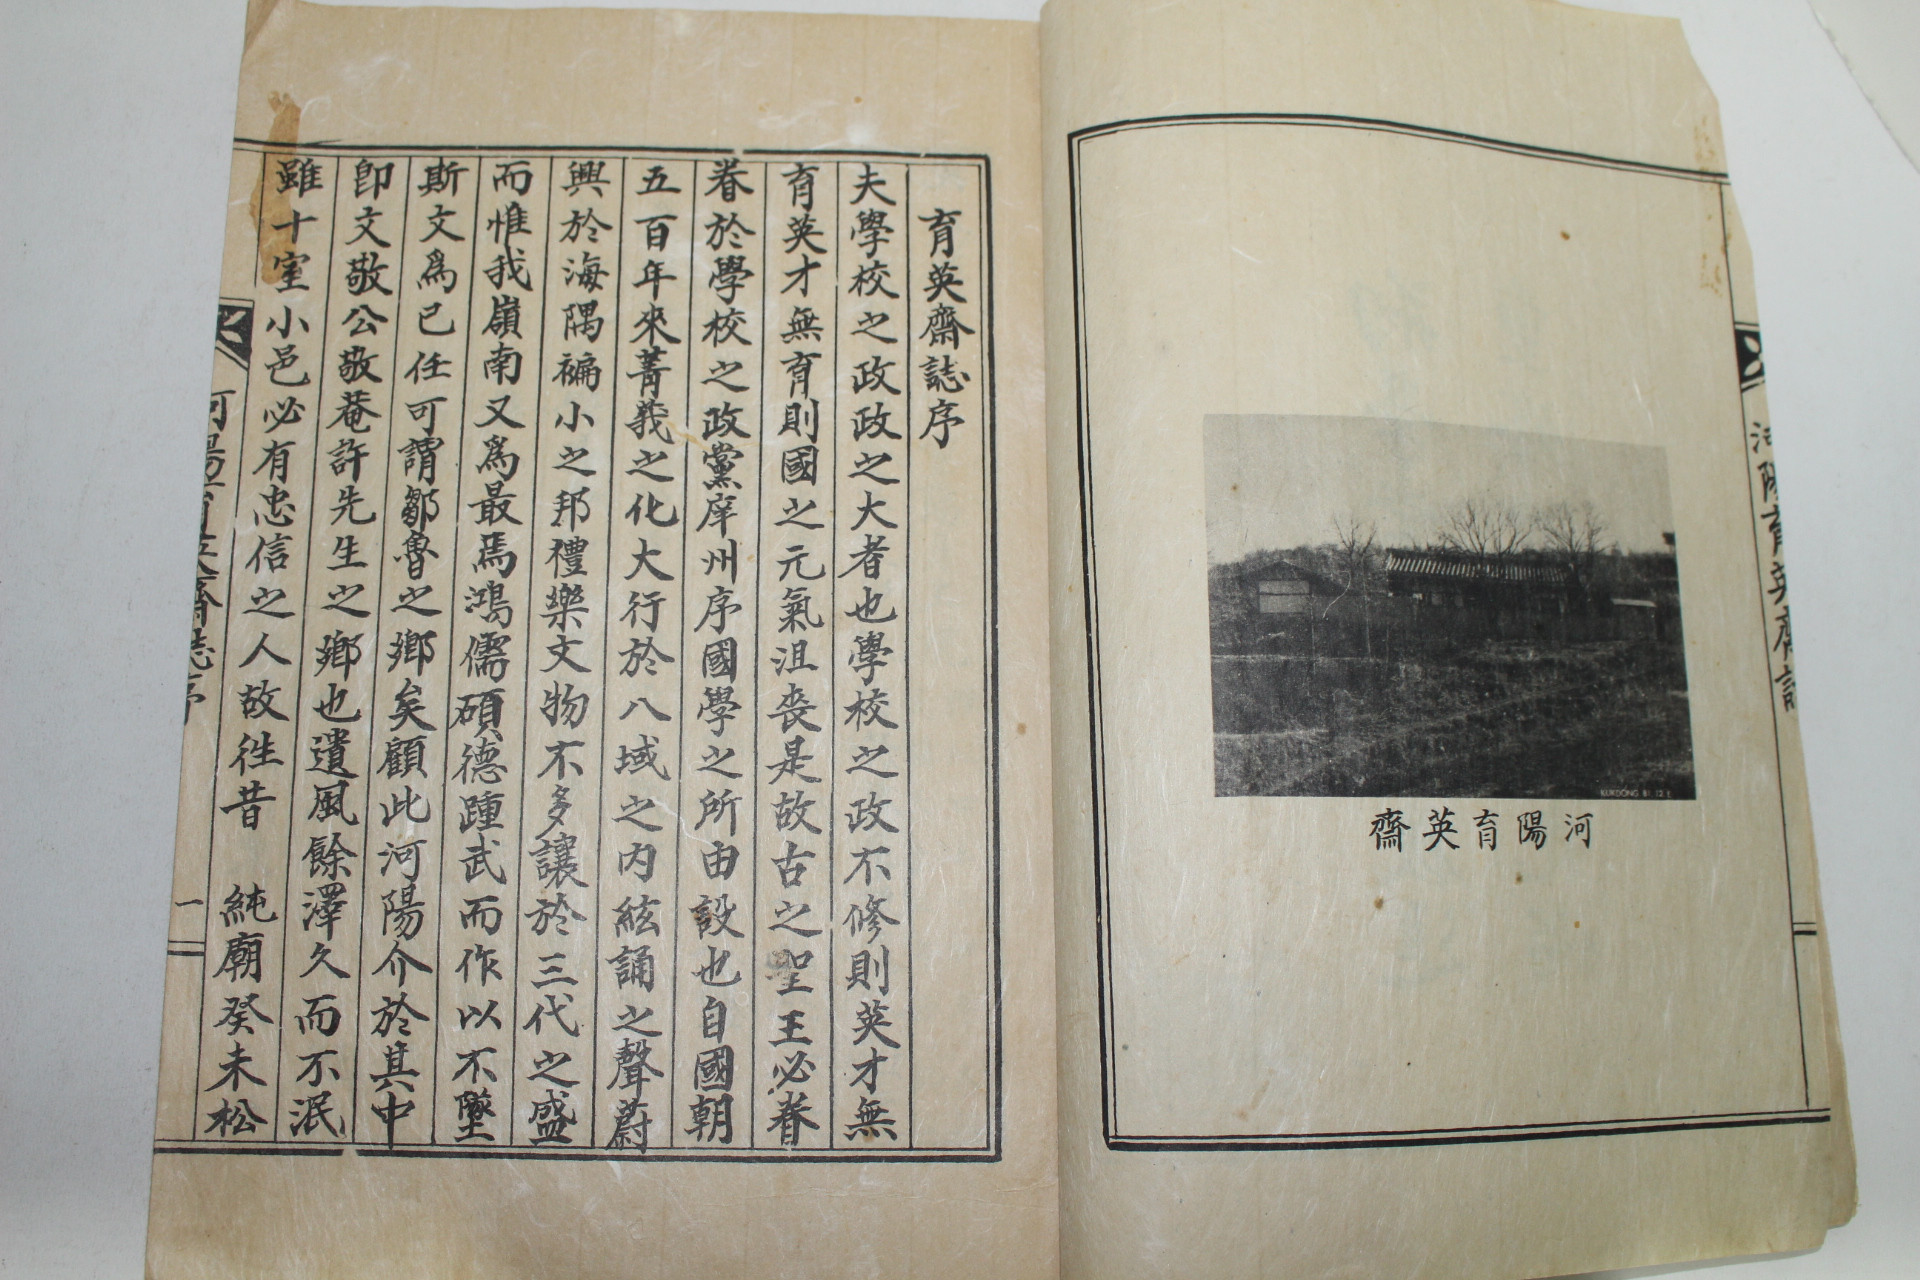 河陽育英齋
KUKDONG 81 12 E
河陽育英齋誌
育英齋誌序
夫學校之政政之大者也學校之政不修則英才無
育英才無育則國之元氣沮喪是故古之聖王必眷
眷於學校之政黨庠州序國學之所由設也自國朝
五百年來菁義之化大行於八域之內絃誦之聲蔚
興於海隅褊小之邦禮樂文物不多讓於三代之盛
而惟我嶺南又爲最焉鴻儒碩德踵武而作以不墜
斯文爲已任可謂鄒魯之鄕矣顧此河陽介於其中
卽文敬公敬菴許先生之鄕也遺風餘澤久而不泯
雖十室小邑必有忠信之人故徃昔 純廟癸未松
河陽育英齋誌序
一